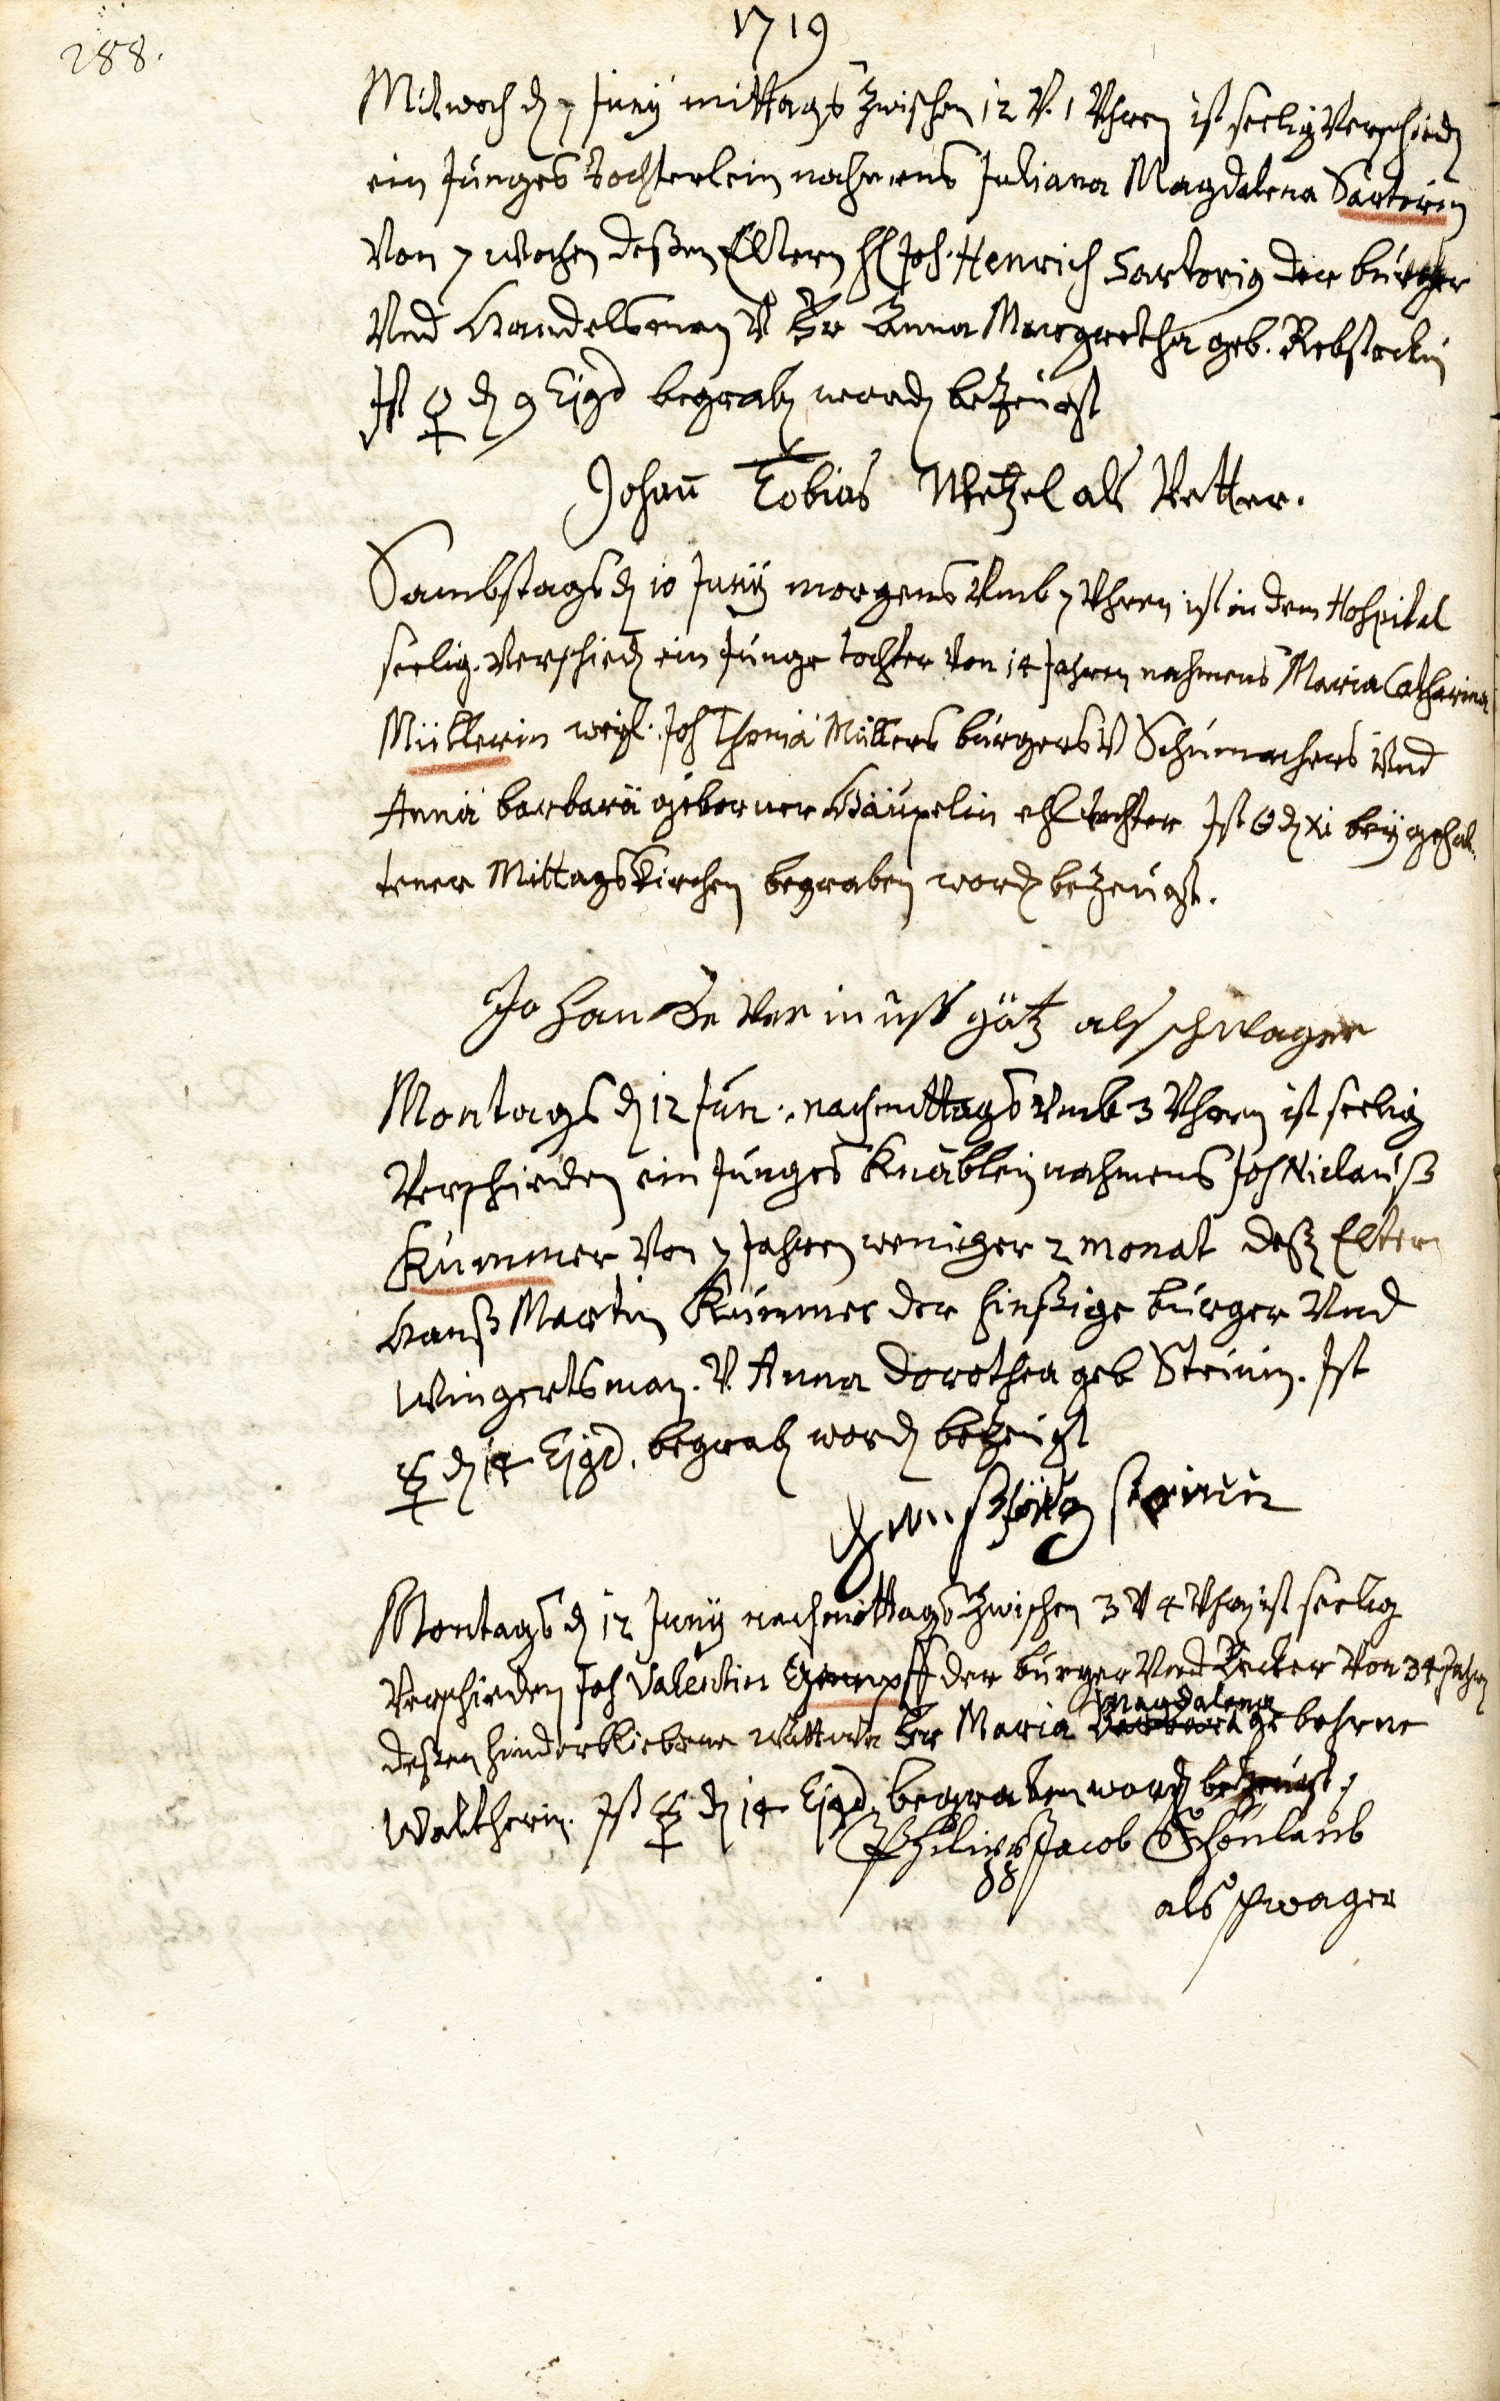 288.
1719
Mitwoch d 7 Juny mittags zwischen 12 V. 1 Uhren ist seelig Verschieden
ein Junges tochterlein nahmens Juliana Magdalena Sartorin
Von 7 wochen deßen Eltern H Joh. Henrich Sartorig der burger
Und Handelsman V Fr Anna Margretha geb. Rebstockin
Ist ♀ d 9 Ejgd begrab word bezeugt
Johann Tobias Wetzel als Vetter.
Sambstags d 10 Juny morgens Umb 7 Uhren ist in dem Hohspital
seelig. Verschied ein Junge tochter Von 14 Jahren nahmens Maria Catharina
Müllerin weyl. Joh Thomä Müllers burgers V Schumachers Und
Annä barbarä geborner Häupelin ehl tochter Ist ☉ d XI bey gehal
tener Mittags Kirchen begraben word bezeugt.
Johan Se Ver in uss götz als schwager
Montags d 12 Jun. nachmittags Umb 3 Uhren ist seelig
Verschieden ein Junges Knäblein nahmens Joh Niclauß
Kummer Von 7 Jahren weniger 2 monat deß Eltern
Hanß Martin Kummer der hiesige burger Und
Wingertsman. V. Anna Dorothea geb Steinin. Ist
☿ d 14 Ejgd. begrab word bezeugt
Montags d 12 Juny nachmittags zwischen 3 V 4 Uhren ist seelig
Verschieden Joh Valentin der burger Und Becker Von 34 Jahren
deßen hinderbliebene wittwe Fr Maria Magdalena gebohrne
Waltherin. Ist ☿ d 14 Ejgd begraben word bezeugt,
Philips Jacob Schönlaub
als schwager